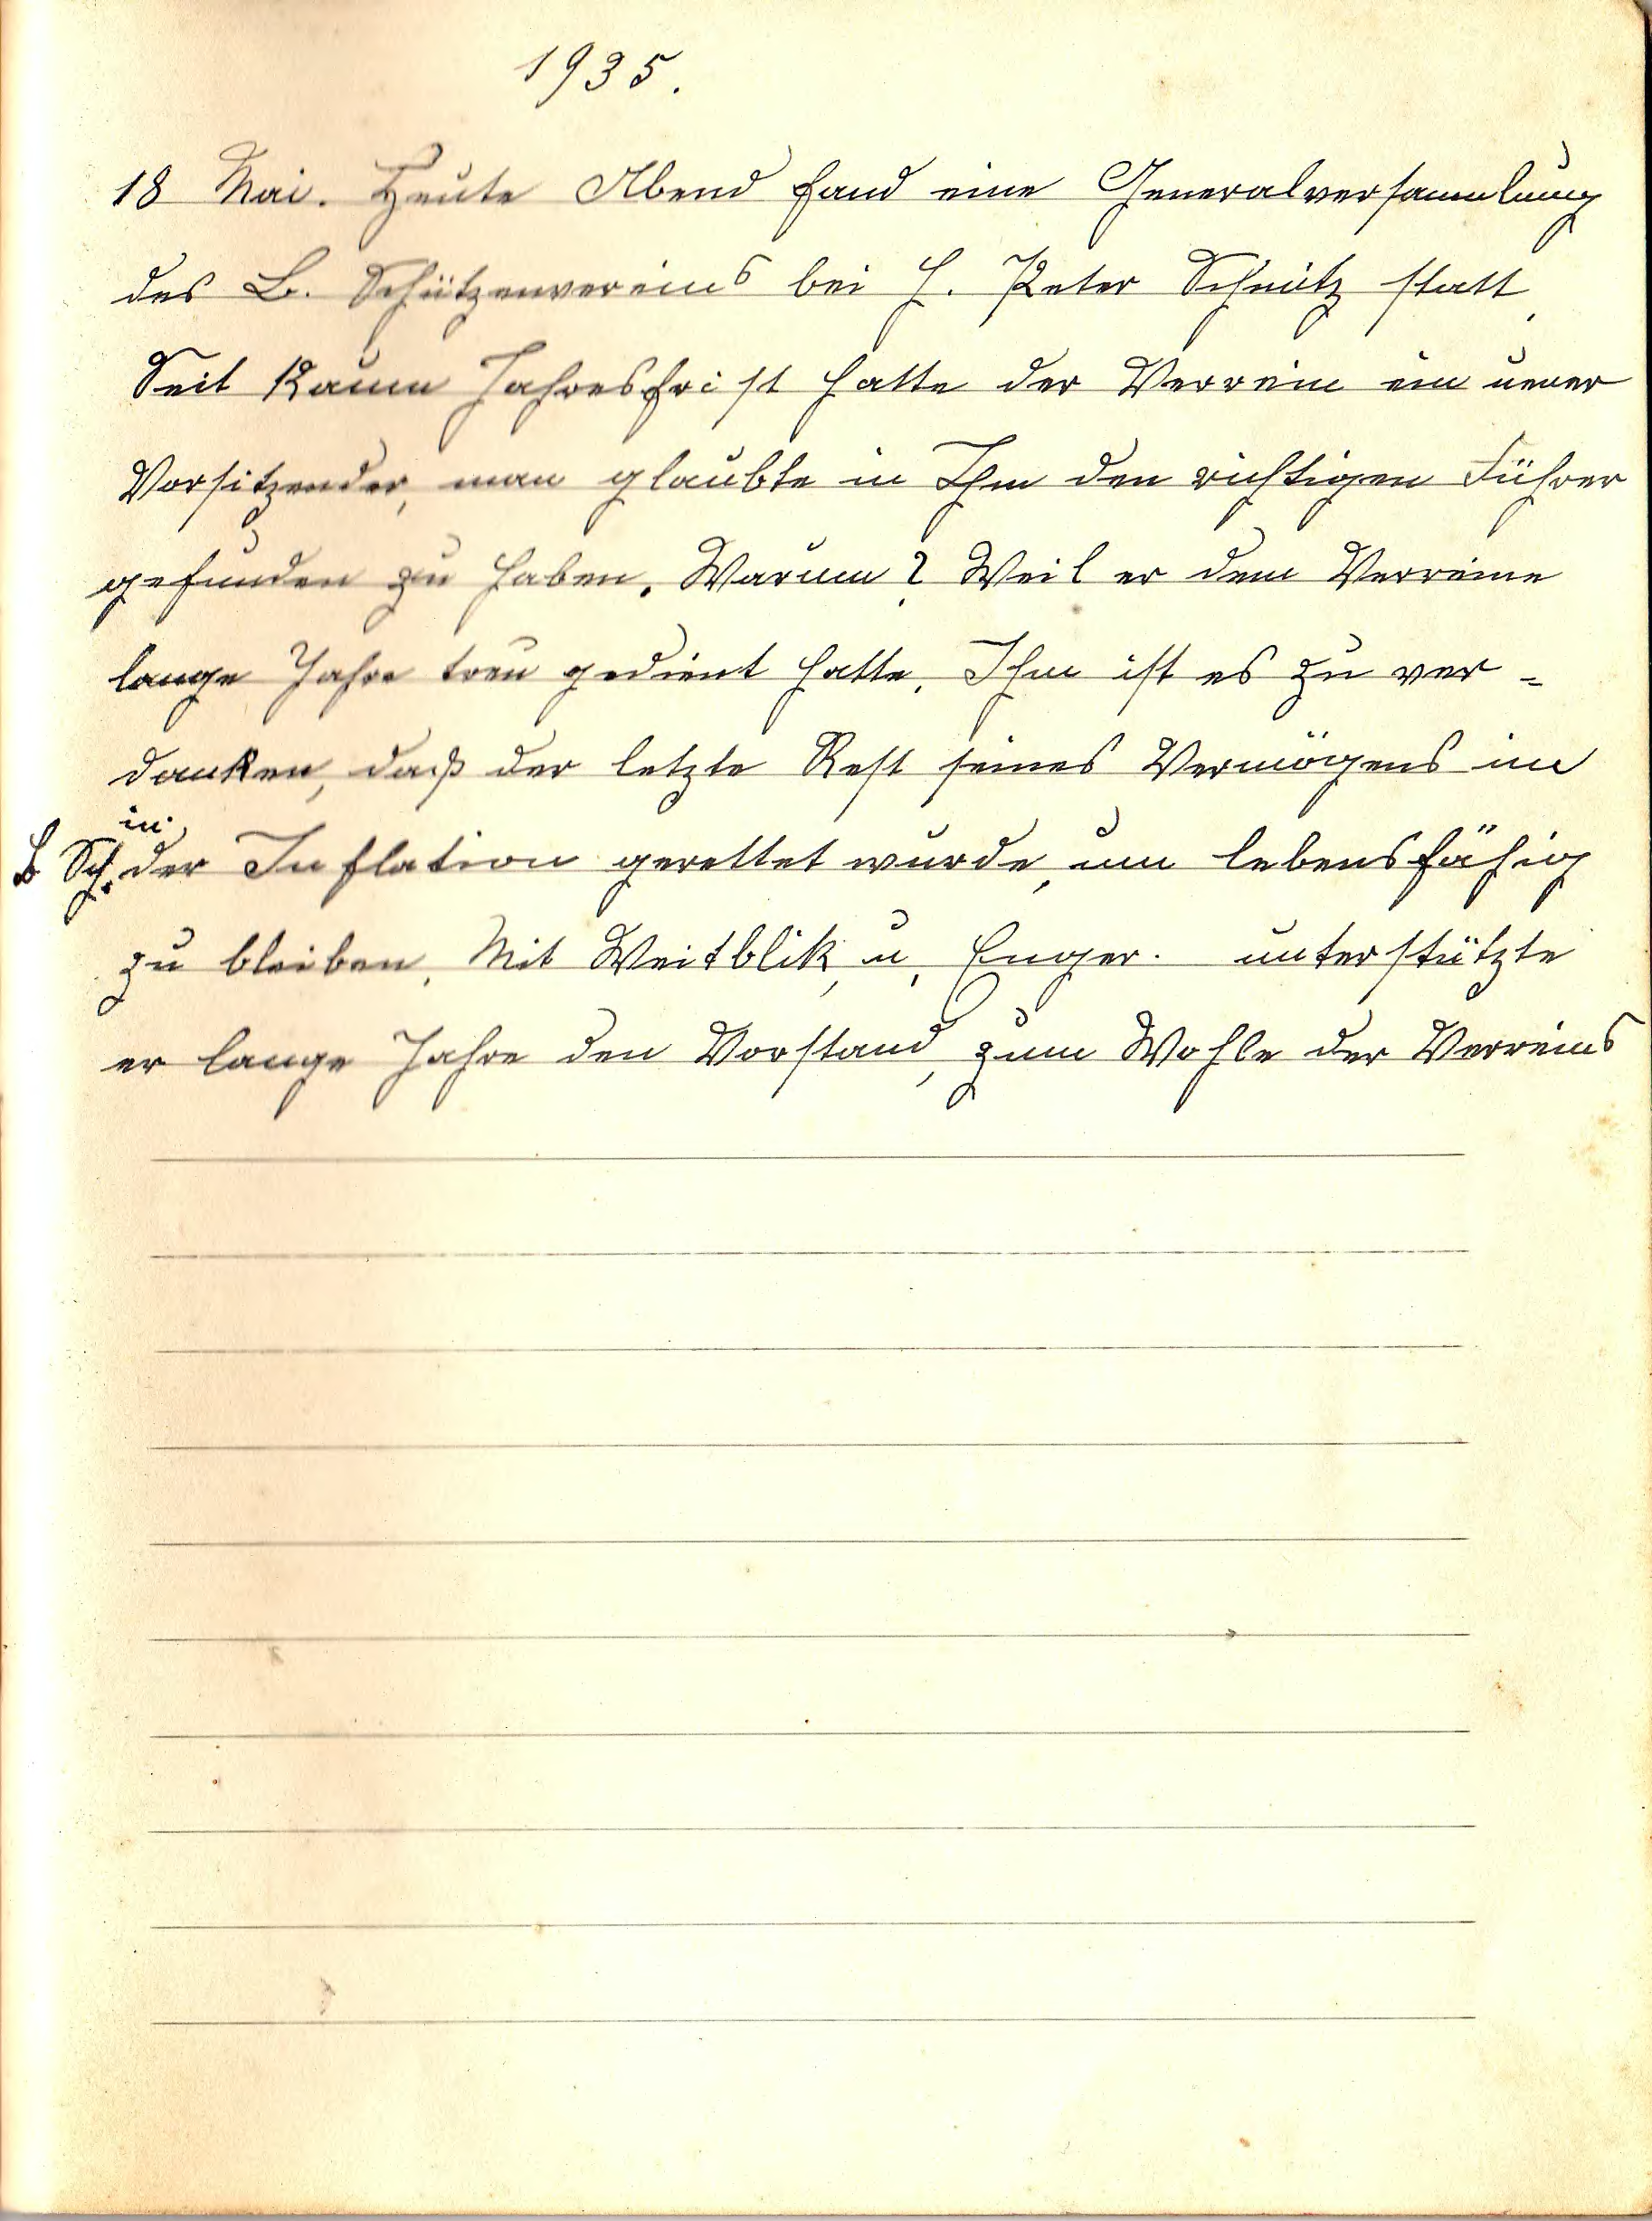 1935.
18 Mai. Heute Abend fand eine Generalversammlung
des B. Schützenvereins bei H. Peter Schmitz statt.
Seit kaum Jahresfrist hatte der Verrein ein neuer
Vorsitzender, man glaubte in Ihm den richtigen Führer
gefunden zu haben. Warum? Weil er dem Verreine
lange Jahre treu gedient hatte. Ihm ist es zu ver =
danken, daß der letzte Rest seines Vermögens im
in
B Sch. der Inflation gerettet wurde, um lebensfähig
zu bleiben. Mit Weitblik, u. unterstützte
er lange Jahre den Vorstand, zum Wohle der Verreins